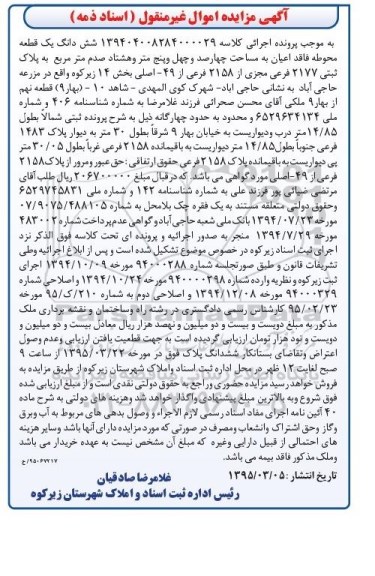 آگهی مزایده اموال غیرمنقول (اسناد ذمه)
به موجب پرونده اجرائی کلاسه ۱۳۹۴۰۴۰۰۸۲۸۴۰۰۰۰۲۹ شش دانگ یک قطعه
محوطه فاقد اعیان به مساحت چهارصد وچهل وپنج متر وهشتاد صدم متر مربع به پلاک
ثبتی ۲۱۷۷ فرعی مجزی از ۲۱۵۸ فرعی از ۴۹- اصلی بخش ۱۴ زیرکوه واقع در مزرعه
حاجی آباد به نشانی حاجی اباد- شهرک کوی المهدی - شاهد ۱۰ - (بهار۹) قطعه نهم
از بهار۹ ملکی آقای محسن صحرائی فرزند غلامرضا به شماره شناسنامه ۴۰۶ و شماره
ملی ۶۵۲۹۶۳۴۱۳۴ و محدود به حدود چهارگانه ذیل به شرح پرونده ثبتی شمالا بطول
۱۴/۸۵متر درب ودیواریست به خیابان بهار ۹ شرقاً بطول ۳۰ متر به دیوار پلاک ۱۴۸۳
فرعی جنوباً بطول۱۴/۸۵ متر دیواریست به باقیمانده ۲۱۵۸ فرعی غرباً بطول ۳۰/۰۵متر
پی دیواریست به باقیمانده پلاک ۲۱۵۸ فرعی حقوق ارتفاقی : حق عبور ومرور از پلاک۲۱۵۸
فرعی از ۴۹-اصلی مورد گواهی می باشد که در قبال مبلغ ۲۰۶۷۰۰۰۰۰ ریال طلب آقای
مرتضی ضیائی پور فرزند علی به شماره شناسنامه ۱۴۲ و شماره ملی ۶۵۲۹۷۴۵۸۳۱
وحقوق دولتی متعلقه مستند به یک فقره چک بلامحل به شماره ۰۷/۹۰۷۵/۴۸۸۱۰۵
مورخه۱۳۹۴/۰۷/۲۳بانک ملی شعبه حاجی آبادو گواهی عدم پرداخت شماره ۴۸۳۰۰۲
مورخه ۱۳۹۴/۷/۲۹ منجر به صدور اجرائیه و پرونده ای تحت کلاسه فوق الذکر نزد
اجرای ثبت اسناد زیرکوه در خصوص موضوع تشکیل شده است و پس از ابلاغ اجرائیه وطی
تشریفات قانون و طبق صورتجلسه شماره ۹۴۰۰۰۲۸۸ مورخه ۱۳۹۴/۱۰/۰۹ اجرای
ثبت زیرکوه و نظریه وارده شماره ۹۴۰۰۰۰۳۹۸ مورخه ۱۳۹۴/۱۰/۲۴ و اصلاحی شماره
۹۴۰۰۰۳۲۹ مورخه ۱۳۹۴/۱۲/۰۸ و اصلاحی دوم به شماره ۲۱۰/ک/۹۵ مورخه
۹۵/۰۲/۲۳ کارشناس رسمی دادگستری در رشته راه وساختمان و نقشه برداری ملک
مذکور به مبلغ دویست و بیست و دو میلیون و نهصد هزار ریال معادل بیست و دو میلیون و
دویست و نود هزار تومان ارزیابی گردیده است به جهت قطعیت یافتن ارزیابی وعدم وصول
اعتراض وتقاضای بستانکار ششدانگ پلاک فوق در مورخه ۱۳۹۵/۰۳/۲۲ از ساعت ۹
صبح لغایت ۱۲ ظهر در محل اداره ثبت اسناد واملاک شهرستان زیرکوه از طریق مزایده به
فروش خواهد رسید مزایده حضوری وراجع به حقوق دولتی نقدی است و از مبلغ ارزیابی شده
فوق شروع وبه بالاترین مبلغ پیشنهادی واگذار خواهد شد وهزینه های دولتی به شرح ماده
۴۰ آئین نامه اجرای مفاد اسناد رسمی لازم الاجراء و وصول بدهی های مربوط به آب وبرق
وگاز وحق اشتراک وانشعاب ومصرف در صورتی که مورد مزایده دارای آنها باشد وسایر هزینه
های احتمالی از قبیل دارایی وغیره که مبلغ آن مشخص نیست به عهده خریدار می باشد
وملک مذکور فاقد بیمه می باشد.
تاریخ انتشار :۱۳۹۵/۰۳/۰۵
غلامرضا صادقیان
رئیس اداره ثبت اسناد و املاک شهرستان زیرکوه